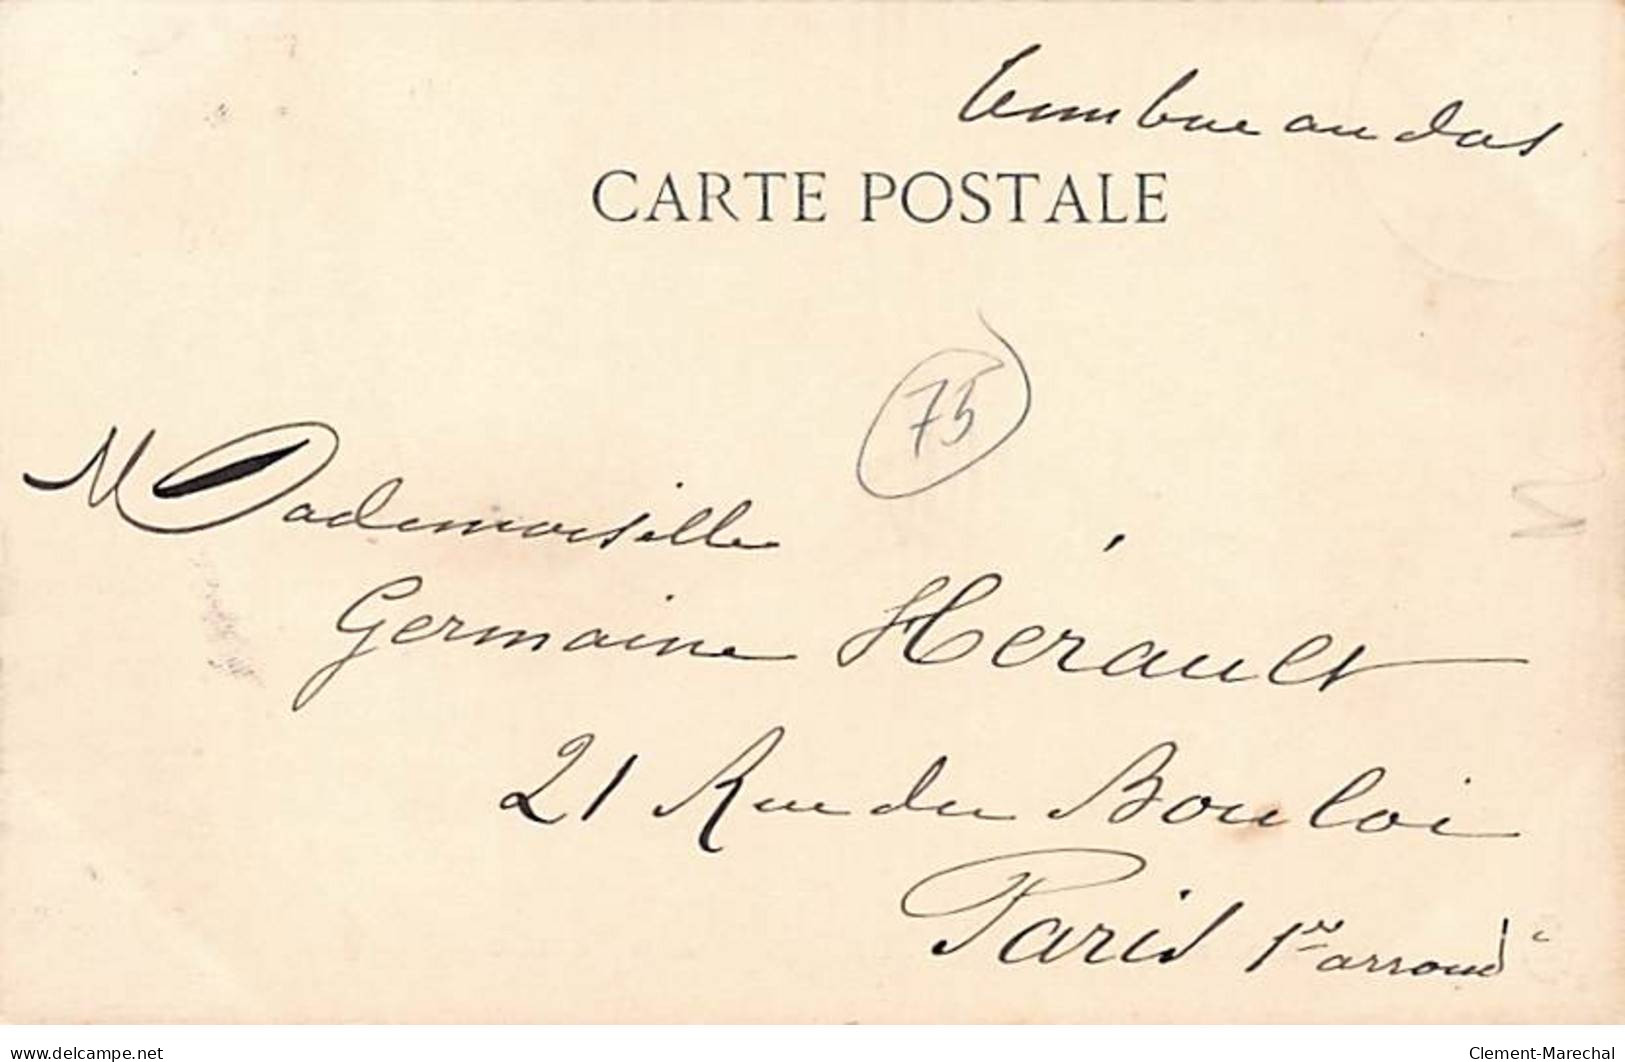 timbre au dos
CARTE POSTALE
75
Mademoiselle
Germaine Hérault
21 Rue du Bouloi
Paris 1er arrond
www.delcampe.net
Clement-Marechal